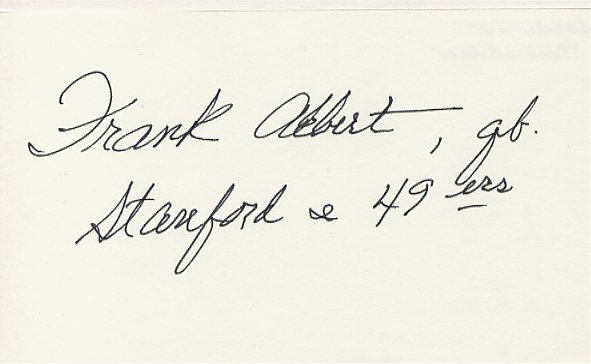 Frank Albert, qb.
Stanford & 49ers